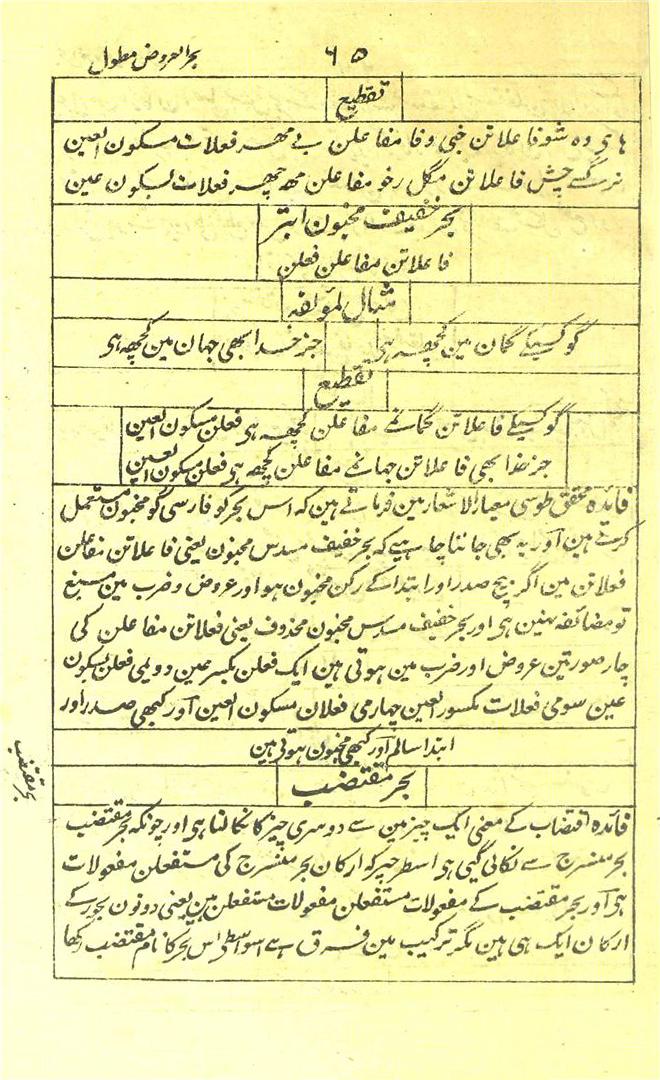 ۶۵ بحر العروض مطول
تقطیع
ہای وہ شو فاعلاتن خیٔ وفا مفاعلن بے مھر فعلات مسکون العین
نرگسے چش فاعلاتن مگل رخو مفاعلن مھ چھر فعلات بسکون عین
بحر خفیف مخبون ابتر
فاعلاتن مفاعلن فعلن
مثال لمؤلفہ
گو کسیکے گمان مین کچھہ ہی جز خدا بھی جہان مین کچھہ ہی
تقطیع
گو کسیکے فاعلاتن گمانمے مفاعلن کچھہ ہی فعلن مسکون العین
جز خدا بھی فاعلاتن جہانمے مفاعلن کچھہ ہی فعلن مسکون العین
فائدہ محقق طوسی معیار الاشعار مین فرماتے ہین کہ اس بحر کو فارسی گو مخبون مستعمل
کرتے ہین اور یہ بھی جاننا چاہیے کہ بحر خفیف مسدس مخبون یعنی فاعلاتن مفاعلن
فعلاتن مین اگر بیچ صدر اور ابتدا کے رکن مخبون ہو اور عروض و ضرب مین مسبغ
تو مضائقہ نہین ہی اور بحر خفیف مسدس مخبون محذوف یعنی فعلاتن مفاعلن کی
چار صورتین عروض اور ضرب مین ہوتی ہین ایک فعلن بکسر عین دویمی فعلن بسکون
عین سومی فعلات بکسور العین چہارمی فعلان مسکون العین اور کبھی صدر اور
ابتدا سالم اور کبھی مخبون ہوتی ہین
بحر مقتضب
بحر مقتضب
فائدہ اقتضاب کے معنی ایک چیز مین سے دوسری چیز کا نکالنا ہی اور چونکہ بحر مقتضب
بحر منسرج سے نکالی گیی ہی اسطرحپر کہ ارکان بحر منسرج کی مستفعلن مفعولات
ہی اور بحر مقتضب کے مفعولات مستفعلن مفعولات مستفعلن ہین یعنی دونون بحور کے
ارکان ایک ہی ہین مگر ترکیب مین فرق ہے اسواسطی اس بحر کا نام مقتضب رکھا